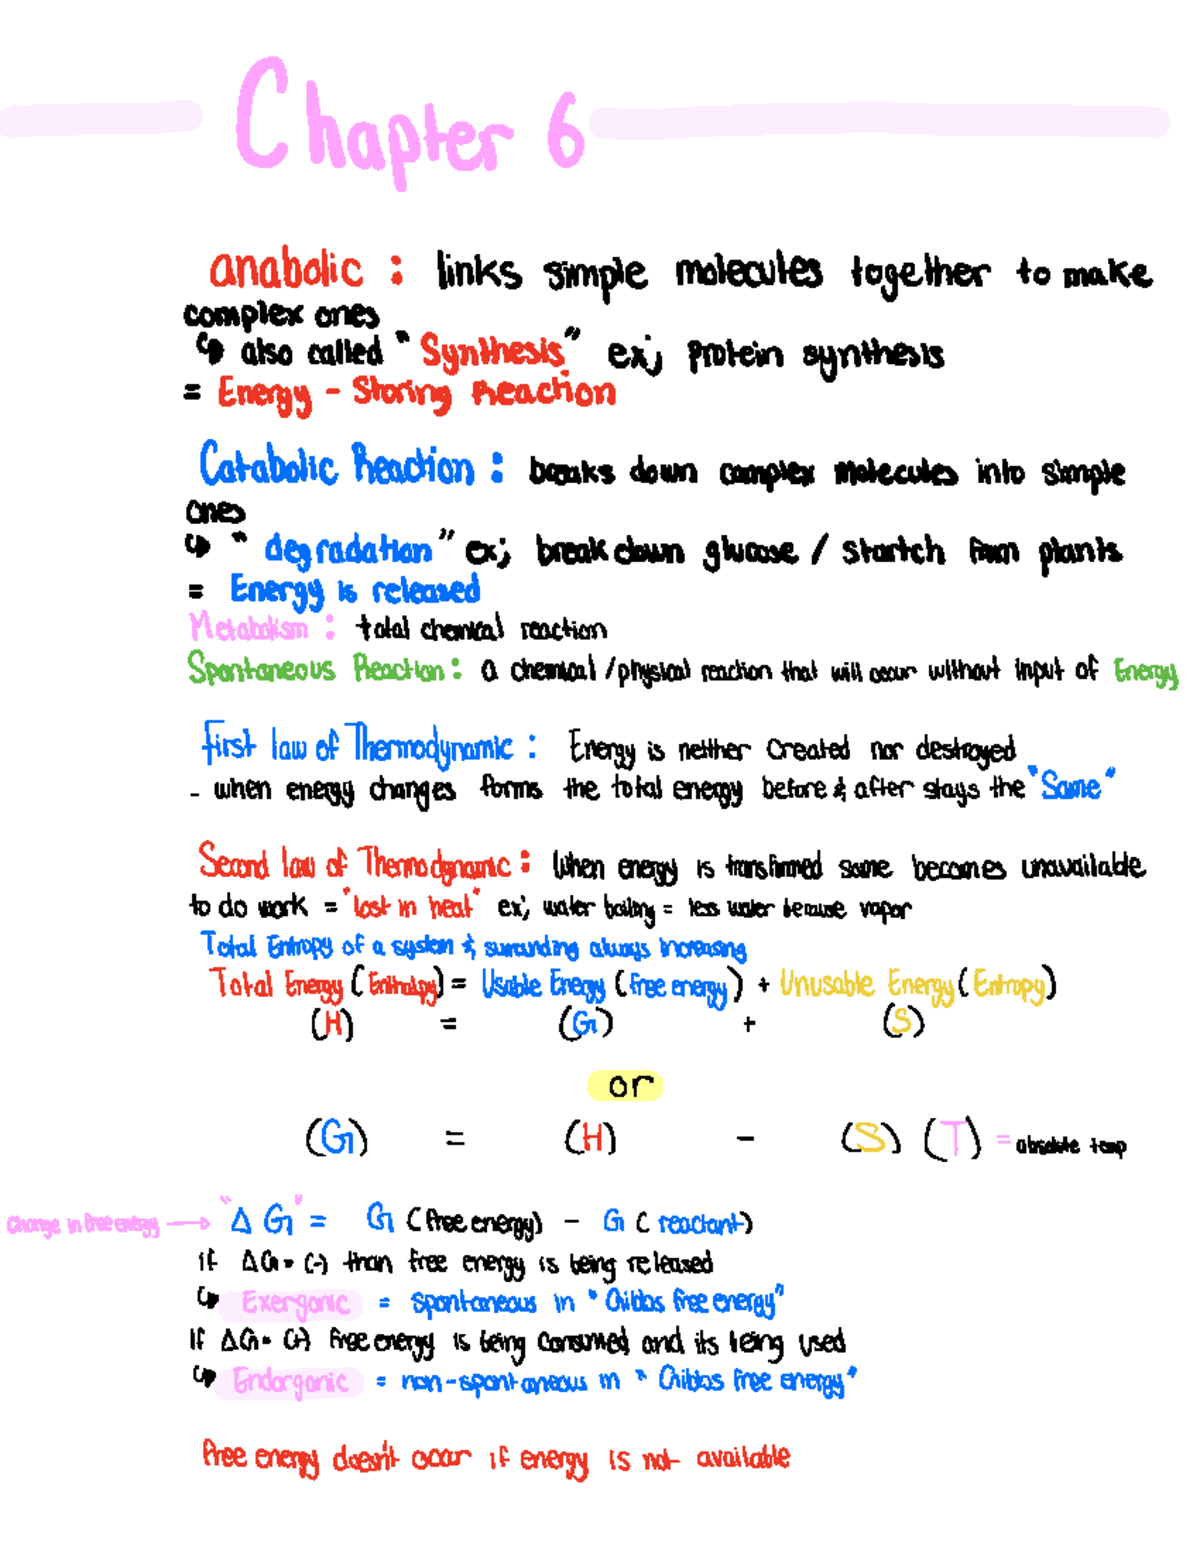 Chapter 6
anabolic : links simple molecules together to make
complex ones
↳ also called "Synthesis" ex; Protein synthesis
= Energy - Storing Reaction
Catabolic Reaction : breaks down complex molecules into simple
ones
↳ "degradation" ex; break down glucose / startch from plants
= Energy is released
Metabolism : total chemical reaction
Spontaneous Reaction : a chemical / physical reaction that will occur without input of Energy
First law of Thermodynamic : Energy is neither created nor destroyed
- when energy changes forms the total energy before & after stays the "Same"
Second law of Thermodynamic : When energy is transformed some becomes unavailable
to do work = "lost in heat" ex; water boiling = less water because vapor
Total Entropy of a system & surrounding always increasing
Total Energy (Enthalpy) = Usable Energy (free energy) + Unusable Energy (Entropy)
(H) = (G) + (S)
or
(G) = (H) - (S) (T) = absolute temp
Change in free energy → "Δ G" = G (free energy) - G (reactant)
if ΔG = (-) than free energy is being released
↳ Exergonic = spontaneous in "Gibbs free energy"
If ΔG = (+) free energy is being consumed and its being used
↳ Endorgonic = non-spontaneous in "Gibbs free energy"
free energy doesn't occur if energy is not available